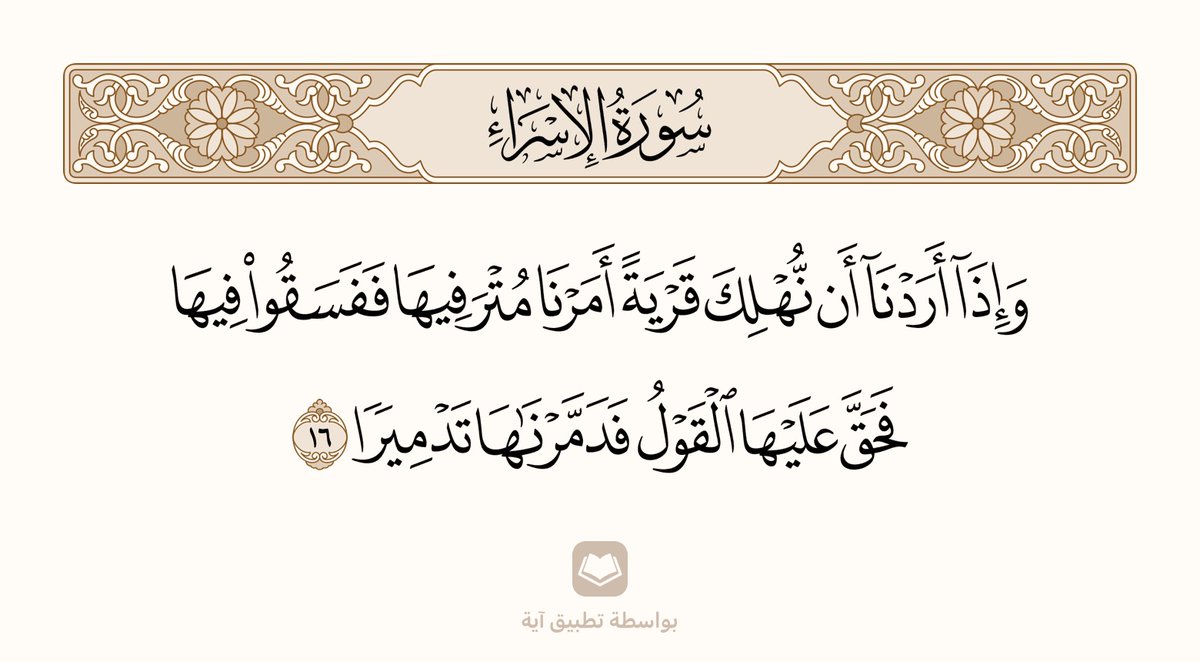 سُورَةُ الإِسْرَاءِ
وَإِذَآ أَرَدْنَآ أَن نُّهْلِكَ قَرْيَةً أَمَرْنَا مُتْرَفِيهَا فَفَسَقُوا۟ فِيهَا
فَحَقَّ عَلَيْهَا ٱلْقَوْلُ فَدَمَّرْنَـٰهَا تَدْمِيرًا ١٦
بواسطة تطبيق آية